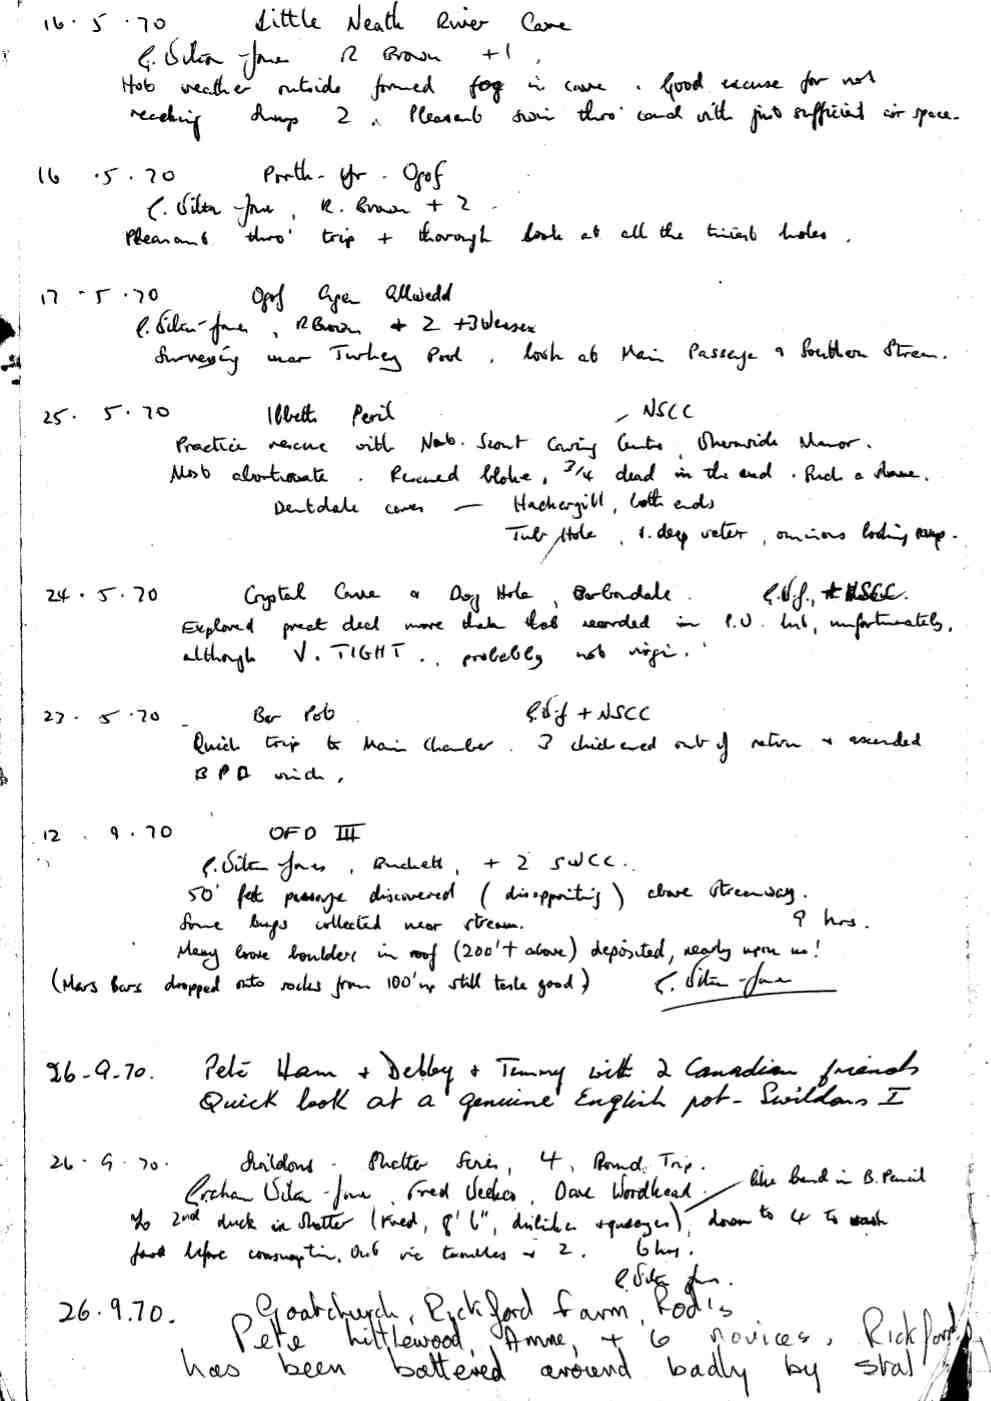 16.5.70 Little Neath River Cave
R Brown +1,
Hot weather outside formed fog in cave. Good excuse for not
reaching dump 2. Pleasant swim thro' canal with just sufficient air space.
16.5.70 Porth-yr-Ogof
R. Brown + 2
Pleasant thro' trip + thorough look at all the tiniest holes.
17-5.70 Ogof Agen Allwedd
R Brown + 2 +3 Wessex
Surveying near Turkey Pool, look at Main Passage & Southern Stream.
25.5.70 Ibbeth Peril - NSCC
Practice rescue with Nat. Scout Caving Centre, Manor.
Most abortionate. Rescued bloke, 3/4 dead in the end. Such a shame.
Dentdale caves — Hackergill, both ends
Tub Hole, v. deep water, ominous looking sump.
24.5.70 Crystal Cave & Dog Hole, Barbondale. G.V.J., + NSCC.
Explored great deal more than that recorded in P.U. but, unfortunately,
although V. TIGHT., probably not virgin.
23.5.70 Bar Pot G.V-J + NSCC
Quick trip to Main Chamber. 3 chickened out of return & ascended
B P C winch.
12.9.70 OFD III
Buckett, + 2 SWCC.
50' feet passage discovered (disappointing) above streamway.
Some bugs collected near stream. 9 hrs.
Many loose boulders in roof (200'+ above) deposited, nearly upon us!
(Mars Bars dropped onto rocks from 100' up still taste good)
26-9-70. Pete Ham + Debby + Timmy with 2 Canadian friends
Quick look at a genuine English pot - Swildons I
26.9.70. Swildons - Shatter Series, 4, Round Trip.
Fred Dave Woodhead. like bend in B. Pencil
to 2nd duck in Shatter (Fred, 8' 6", dislikes squeezes), down to 4 to wash
food before consumption. Out via troubles & 2. 6 hrs.
26.9.70. Goatchurch, Rickford Farm, Rod's
Pete Littlewood, Anne, + 6 novices. Rickford
has been battered around badly by stal